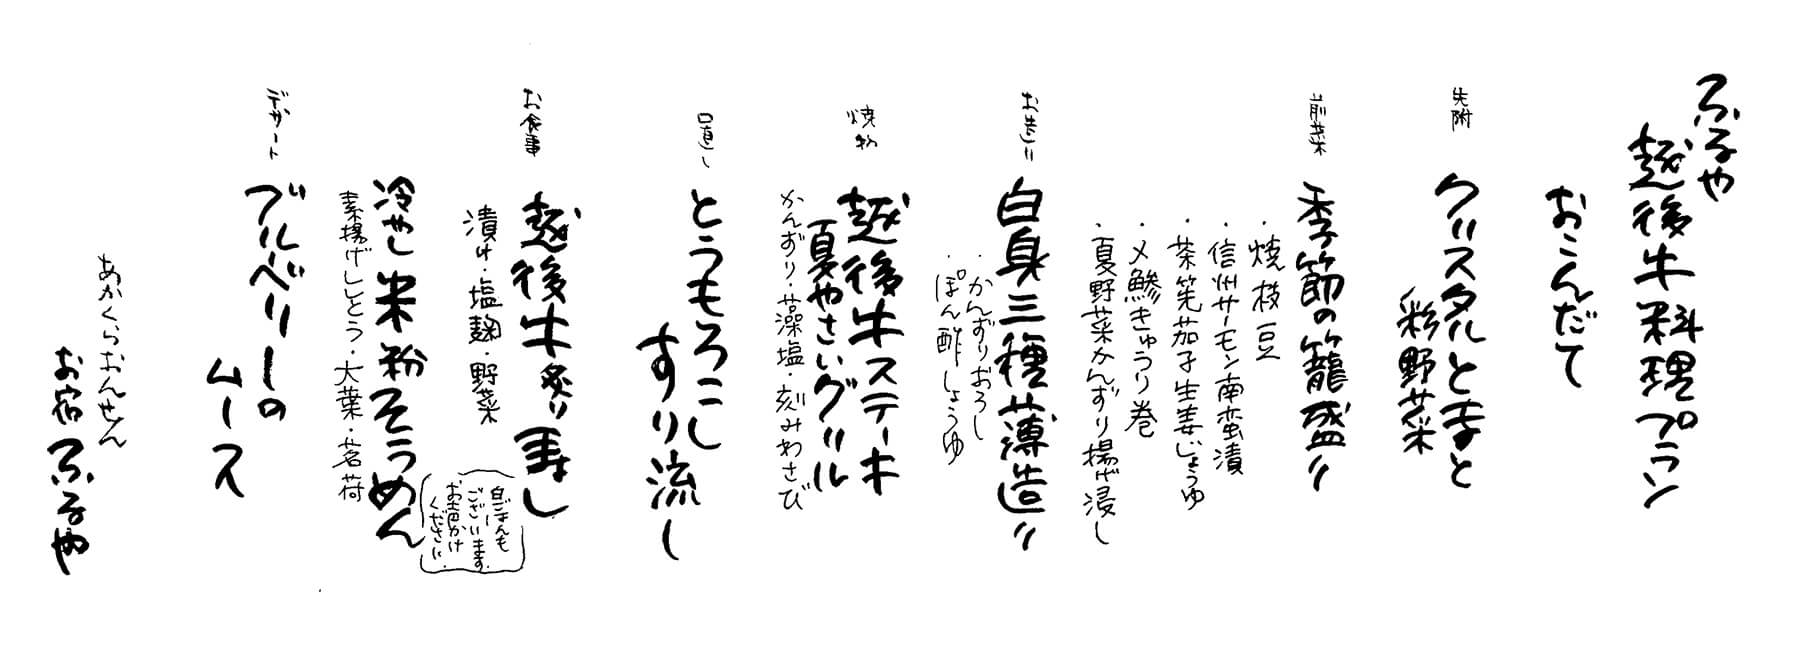 ふるや
越後牛料理プラン
おこんだて
先附
クリスタルとまと
彩野菜
前菜
季節の籠盛り
・焼枝豆
・信州サーモン南蛮漬
・茶筅茄子生姜じょうゆ
・〆鯵きゅうり巻
・夏野菜かんずり揚げ浸し
お造り
白身三種薄造り
・かんずりおろし
・ぽん酢しょうゆ
焼物
越後牛ステーキ
夏やさいグリル
かんずり・藻塩・刻みわさび
口直し
とうもろこし
すり流し
お食事
越後牛炙り寿し
漬け・塩麹・野菜
白ごはんも
ございます。
お声かけ
ください。
冷やし米粉そうめん
素揚げししとう・大葉・茗荷
デザート
ブルーベリーの
ムース
あかくらおんせん
お宿ふるや